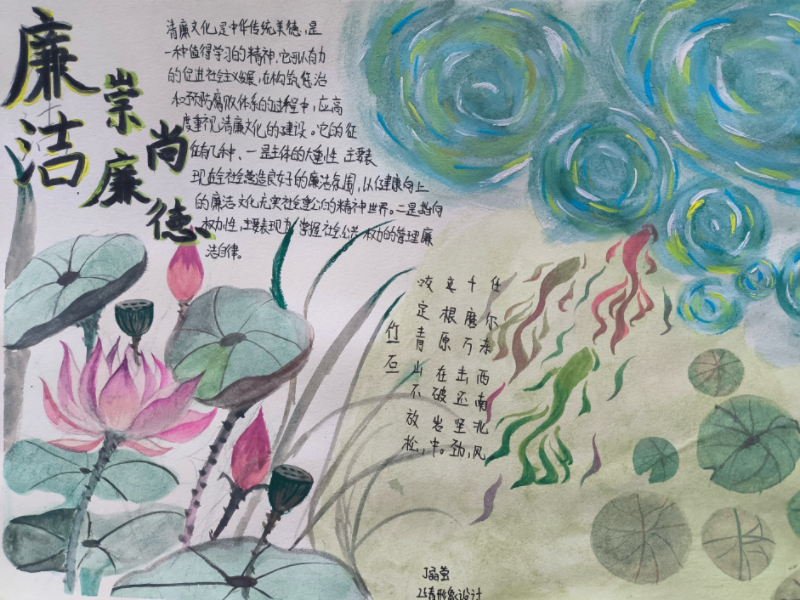 廉洁
崇廉
尚德
清廉文化,是中华传统美德,是
一种值得学习的精神,它可以有力
的促进社会主义发展,在构筑惩治
和预防腐败体系的过程中,应高
度重视清廉文化的建设。它的征
在有几种、一是主体的大重性,主要表
现在全社会营造良好的廉洁氛围,以健康向上
的廉洁文化充实社会重公的精神世界。二是教向
权力性,主要表现为掌握社会公共权力的管理廉
洁自律。
竹石
咬定青山不放松,
立根原在破岩中。
千磨万击还坚劲,
任尔东西南北风
丁晶莹
25青形象设计